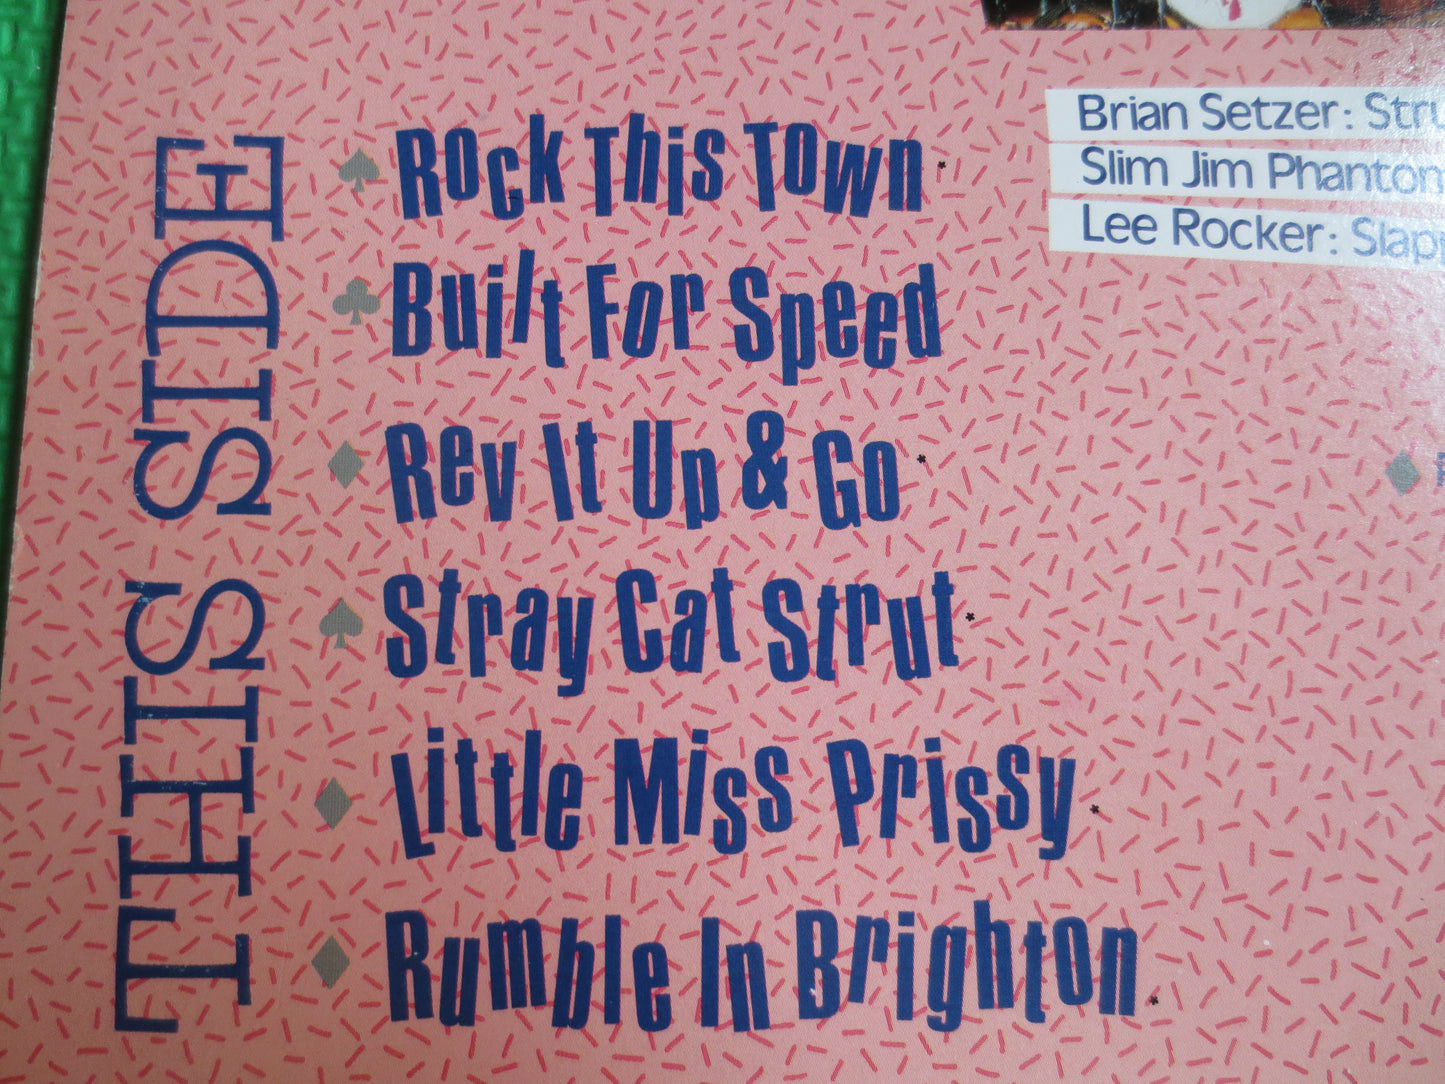 THIS SIDE
Rock This Town*
Built For Speed
Rev It Up & Go*
Stray Cat Strut*
Little Miss Prissy*
Rumble In Brighton*
Brian Setzer:
Slim Jim Phantom
Lee Rocker: